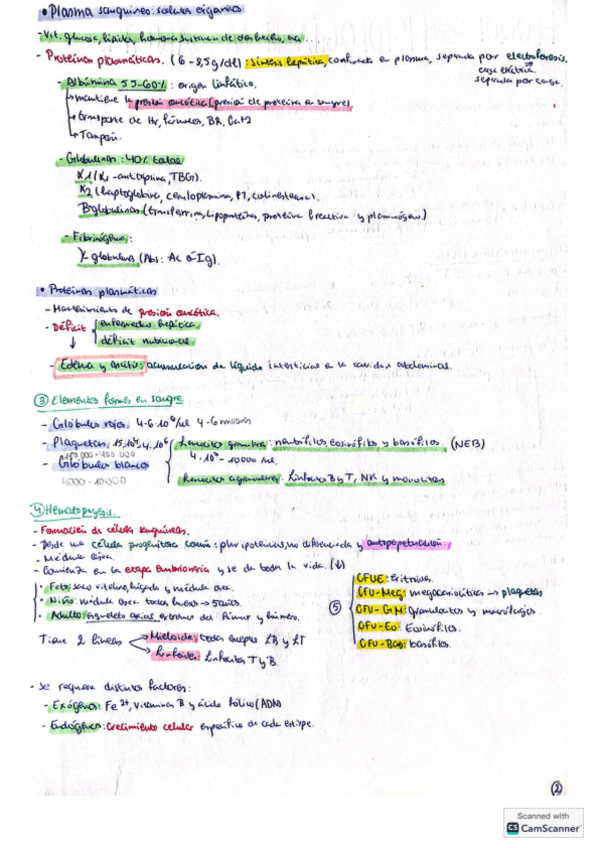 • Plasma sanguíneo: solutos orgánicos
- Vit, glucosa, lípidos, hormonas, sustancias de desecho, ...
- Proteínas plasmáticas. (6 - 8,5 g/dl): síntesis hepática, confinada en plasma, separada por electroforesis.
carga eléctrica
separada por carga.
- Albúmina 55-60%: origen linfático.
→ mantiene la presión oncótica (presión de proteína en sangre)
→ transporte de Hr, fármacos, BR, Ca+2
→ Tampón.
- Globulinas: 40% totales
-antitripsina, TBG).
α2 (haptoglobina, ceruloplasmina, PT, colinesterasa).
β globulinas (transferrina, lipoproteína, proteína C reactiva y plasminógeno)
- Fibrinógeno:
γ-globulinas (Abs: Ac ó Ig).
• Proteínas plasmáticas
- Mantenimiento de presión oncótica.
- Déficit
enfermedad hepática
déficit nutricional
- Edema y Ascitis: acumulación de líquido intersticial en la cavidad abdominal.
③ Elementos formes en sangre
- Glóbulos rojos: 4-6·10⁶/ul 4-6 millones
- Plaquetas:
150 000 - 400 000
Leucocitos granulares: neutrófilos, eosinófilos y basófilos. (NEB)
- Glóbulos blancos
4·10³ - 10000 /ul.
4000 - 10000
agranulares: Linfocitos B y T, NK y monocitos
④ Hematopoyesis.
- Formación de células sanguíneas.
- Desde una célula progenitora común: pluripotencial, no diferenciada y autoperpetuación.
- Médula ósea.
- Comienza en la etapa embrionaria y se da toda la vida. (↓)
• Feto: saco vitelino, hígado y médula ósea.
• Niño: médula ósea todos huesos → 5 años.
• Adulto: esqueleto axial, extremos del fémur y húmero.
⑤
CFUE: Eritrocitos.
CFU-Meg: megacariocíticas → plaquetas
CFU-GM: granulocitos y macrófagos.
CFU-Eo: Eosinófilos.
CFU-Bas: basófilos.
Tiene 2 líneas
Mieloide: todas excepto LB y LT
Linfoide: Linfocitos T y B.
- Se requiere distintos factores:
- Exógenos: Fe²⁺, vitamina B y ácido fólico (ADN)
- Endógenos: Crecimiento celular específico de cada estirpe.
②
Scanned with
CS CamScanner